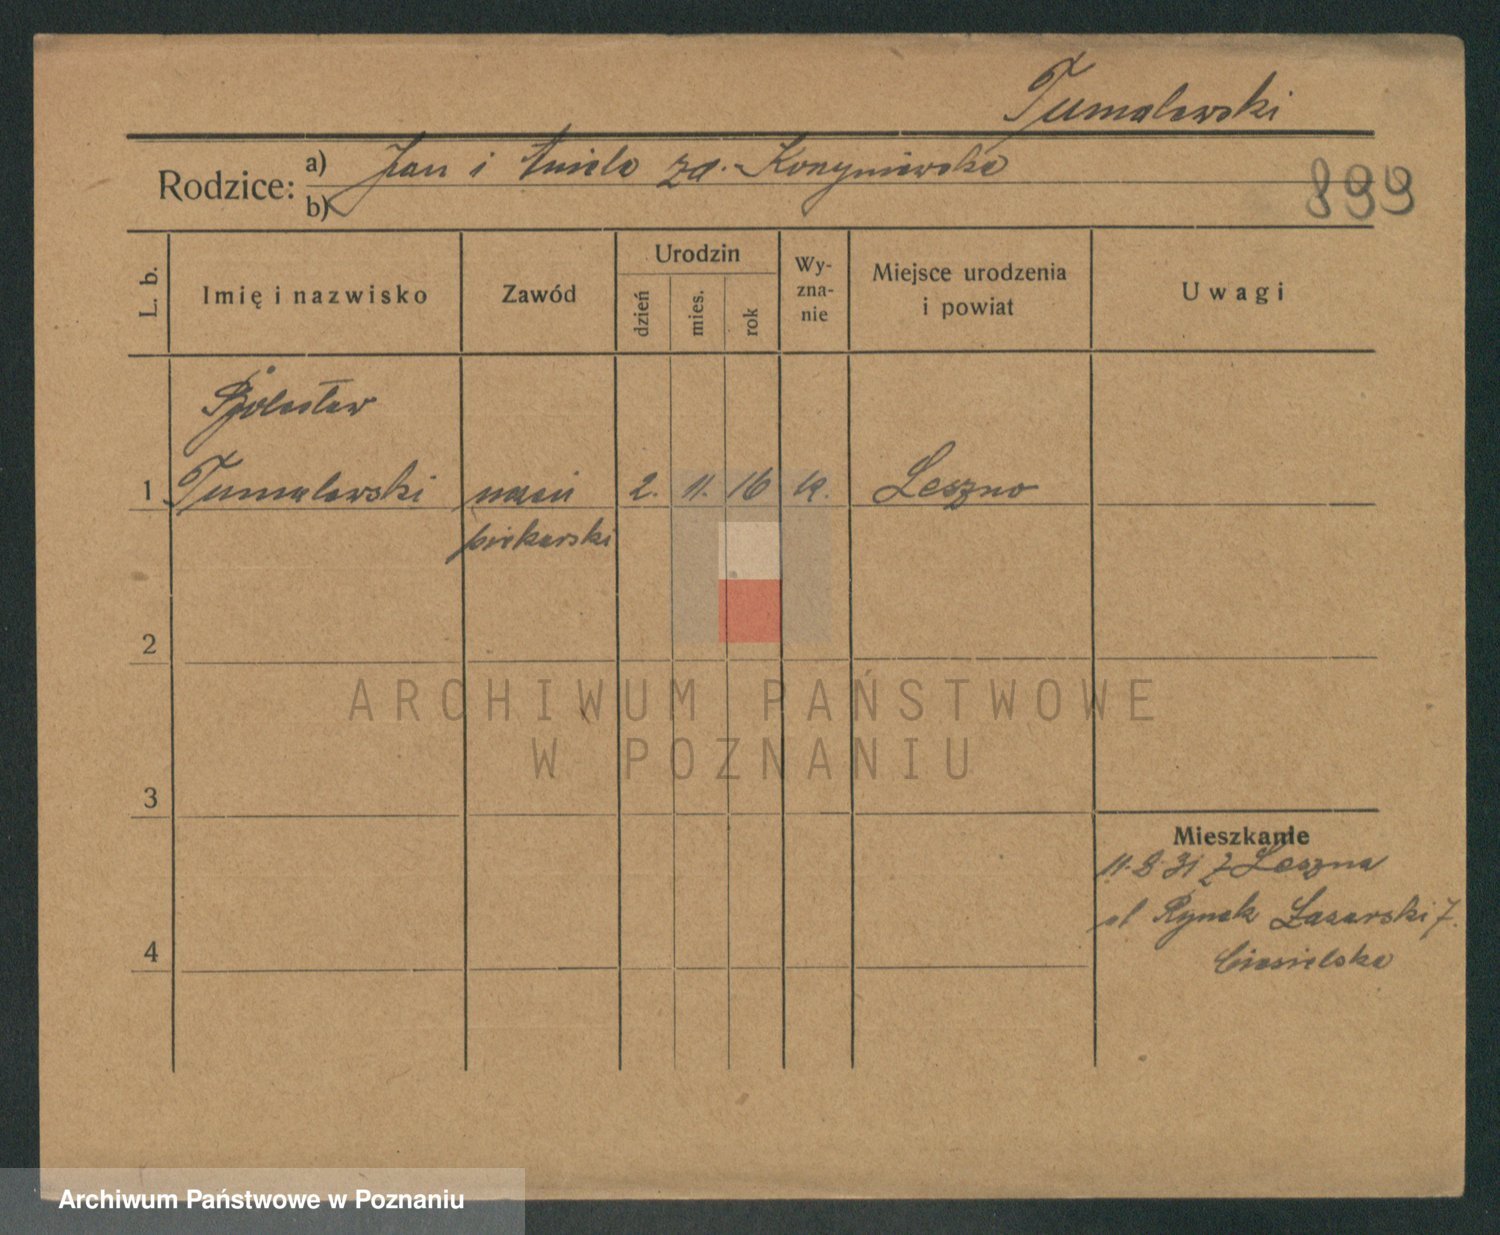 Tumalewski
Rodzice: a) Jan i Aniela zd. Konyniewska
b)
899
L. b.
Imię i nazwisko
Zawód
Urodzin
dzień
mies.
rok
Wy-
zna-
nie
Miejsce urodzenia
i powiat
Uwagi
Bolesław
1 Tumalewski uczeń 2. 11. 16 k. Leszno
piekarski
2
ARCHIWUM PAŃSTWOWE
W POZNANIU
3
Mieszkanie
11.8.31 z Leszna
ul Rynek Łazarski 7.
4
Ciesielska
Archiwum Państwowe w Poznaniu